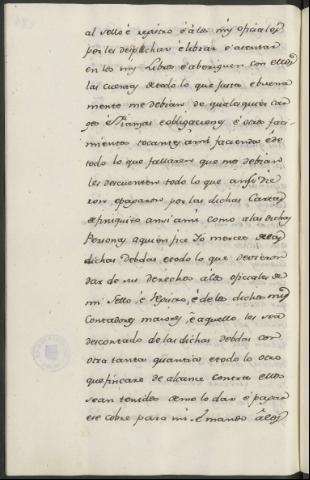 al sello é registro é á los mis oficiales
por les despachar é librar é asentar
en los mis Libros é aberiguen con ellos
las cuentas de todo lo que justa e buena
mente me debian de qualesquier car
gos é Fianzas e obligaciones é otros faci
mientos tocantes á mi facienda é de
todo lo que fallaren que me debian
les descuenten todo lo que ansi die
ron é pagaron por las dichas Cartas
de finiquito ansi á mi como á las dichas
Personas a quien fice Yo merced de las
dichas debdas e todo lo que dieron
das de sus derechos á los oficiales de
mi Sello, é Registro, é de los dichos mis
Contadores mayores, é aquello les sea
descontado de las dichas debdas con
otra tanta quantia e todo lo otro
que fincare de alcance contra ellos
sean tenidos de me lo dar é pagar
é se cobre para mi. É mando á los